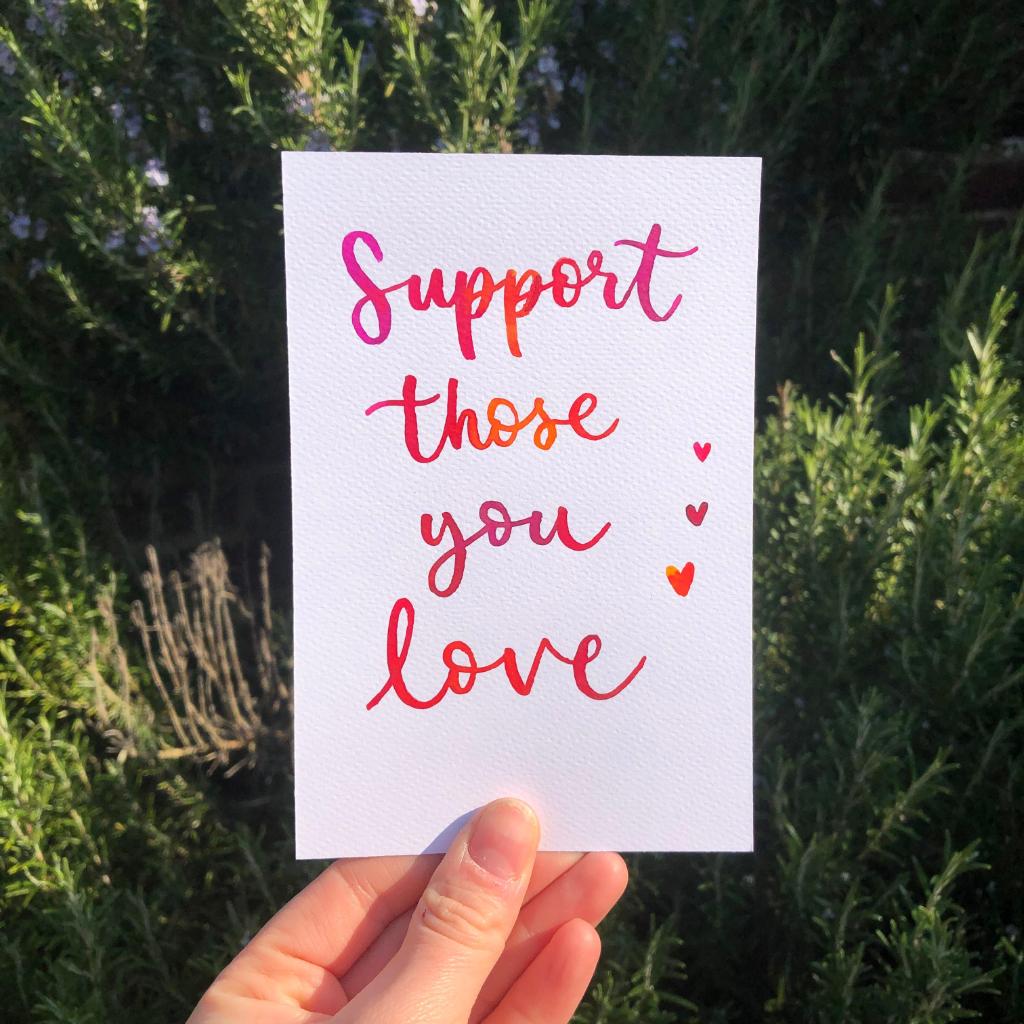 Support
those
you
love